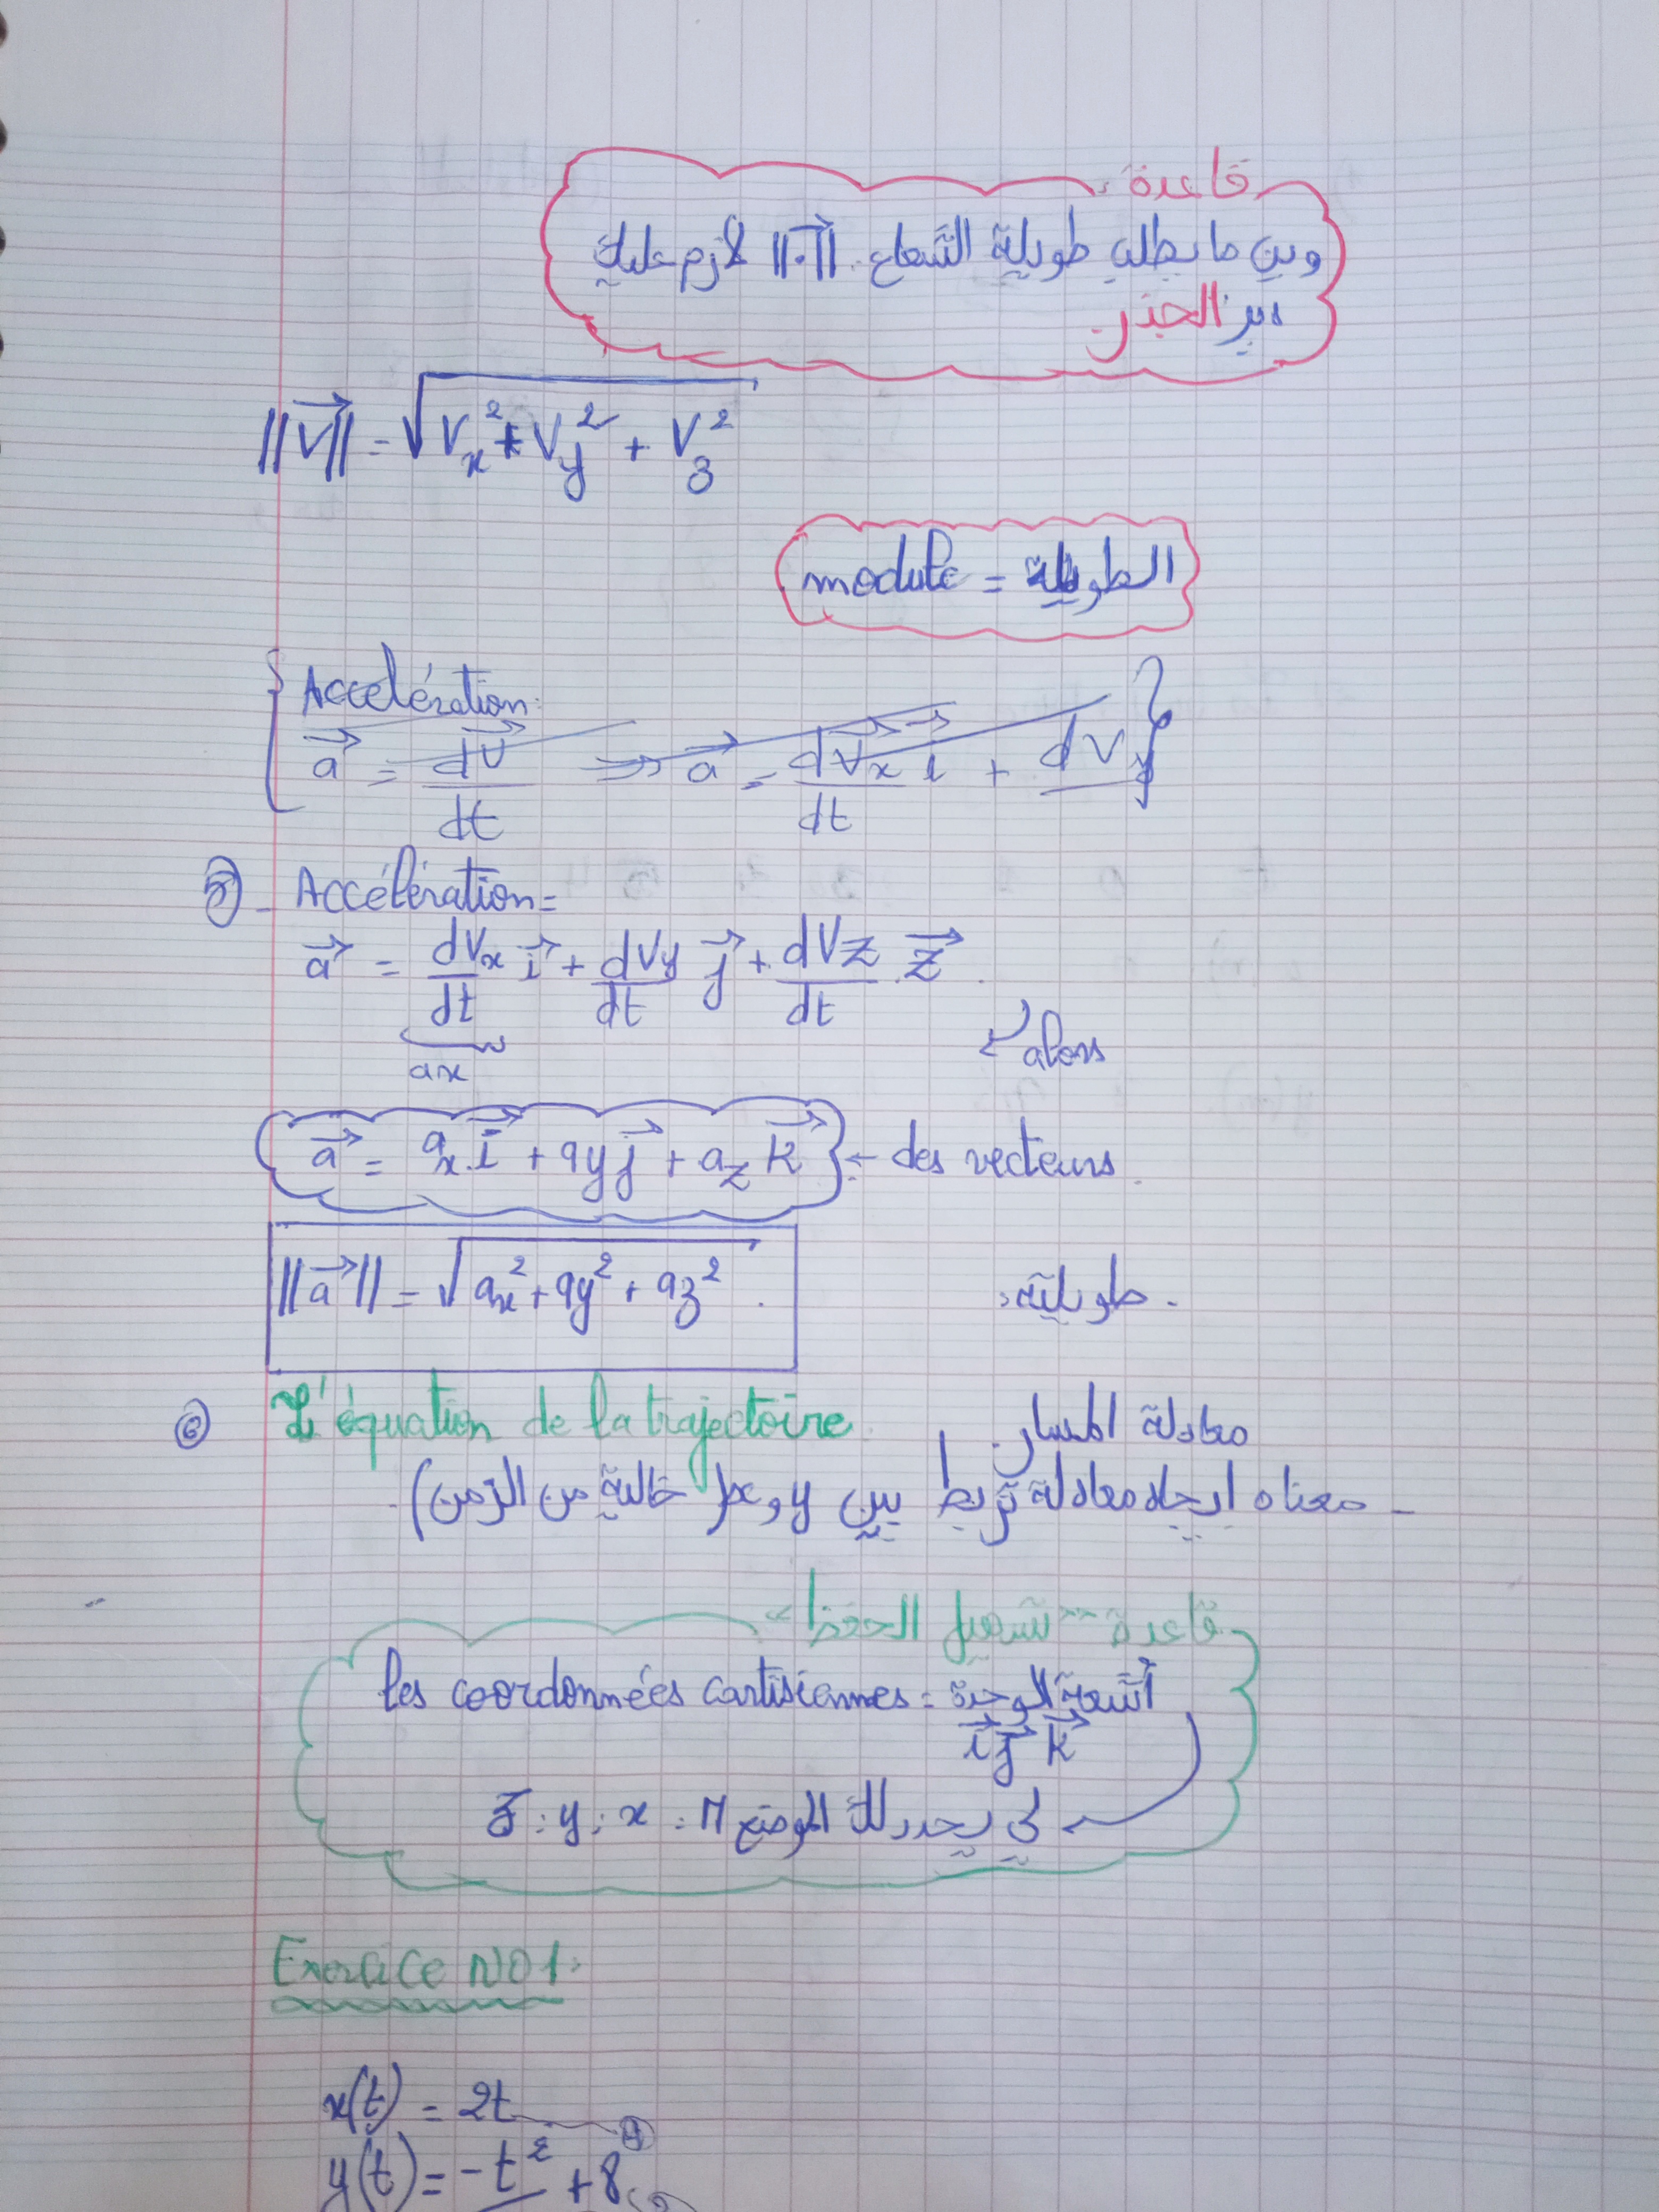 قاعدة:
وين ما يطلب طويلة الشعاع ||.|| لازم عليك
دير الجذر.
||V⃗|| = √(Vx² + Vy² + Vz²)
module = الطويلة
Accelération:
a⃗ = dV⃗/dt ⇒ a⃗ = dVx/dt i⃗ + dVy
5) - Accélération =
a⃗ = dVx/dt i⃗ + dVy/dt j⃗ + dVz/dt z⃗ .
ax
alors
a⃗ = ax.i⃗ + ayj⃗ + az k⃗ ← des vecteurs.
||a⃗|| = √(ax² + ay² + az²) . - طويلة:
6 L'équation de la trajectoire. معادلة المسار.
- معناه ايجاد معادلة تربط بين y و x (خالية من الزمن).
قاعدة "تسهيل الحفظ"
les coordonnées cartisiennes = أشعة الوحدة
i⃗ j⃗ k⃗
لي يحدد لك الموضع M : x ; y ; z
Exercice N01:
x(t) = 2t ①
y(t) = -t² + 8 ②